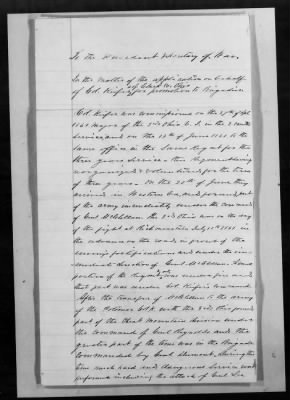 To the President Secretary of War.
In the matter of the application on behalf
of Col. Keifer for promotion to Brigadier
Col. Keifer was commissioned on the 27th of Apl
1861 Major of the 3rd Ohio V. I. in the 3 months
service, and on the 12th of June 1861 to the
same office in the same Regmt for the
three years service - this Regiment having
reorganized & volunteered for the term
of three years. On the 22nd of June they
arrived in Western Va. and formed part
of the army immediately under the command
of Genl McClellan. The 3rd Ohio was on the day
of the fight at Rich mountain July 11th 1861 in
the advance on the road in front of the
enemy's fortifications and under the im-
mediate direction of Genl McClellan. A
portion of the Regmt was under fire and
that part was under Col Keifer's command.
After the transfer of McClellan to the army
of the Potomac Col. K. with the 3rd Ohio formed
part of the Cheat Mountain division under
the command of Genl Reynolds and the
greater part of the time was in the Brigade
commanded by Genl Dumont, during this
time much hard and dangerous service was
performed including the attack of Genl Lee